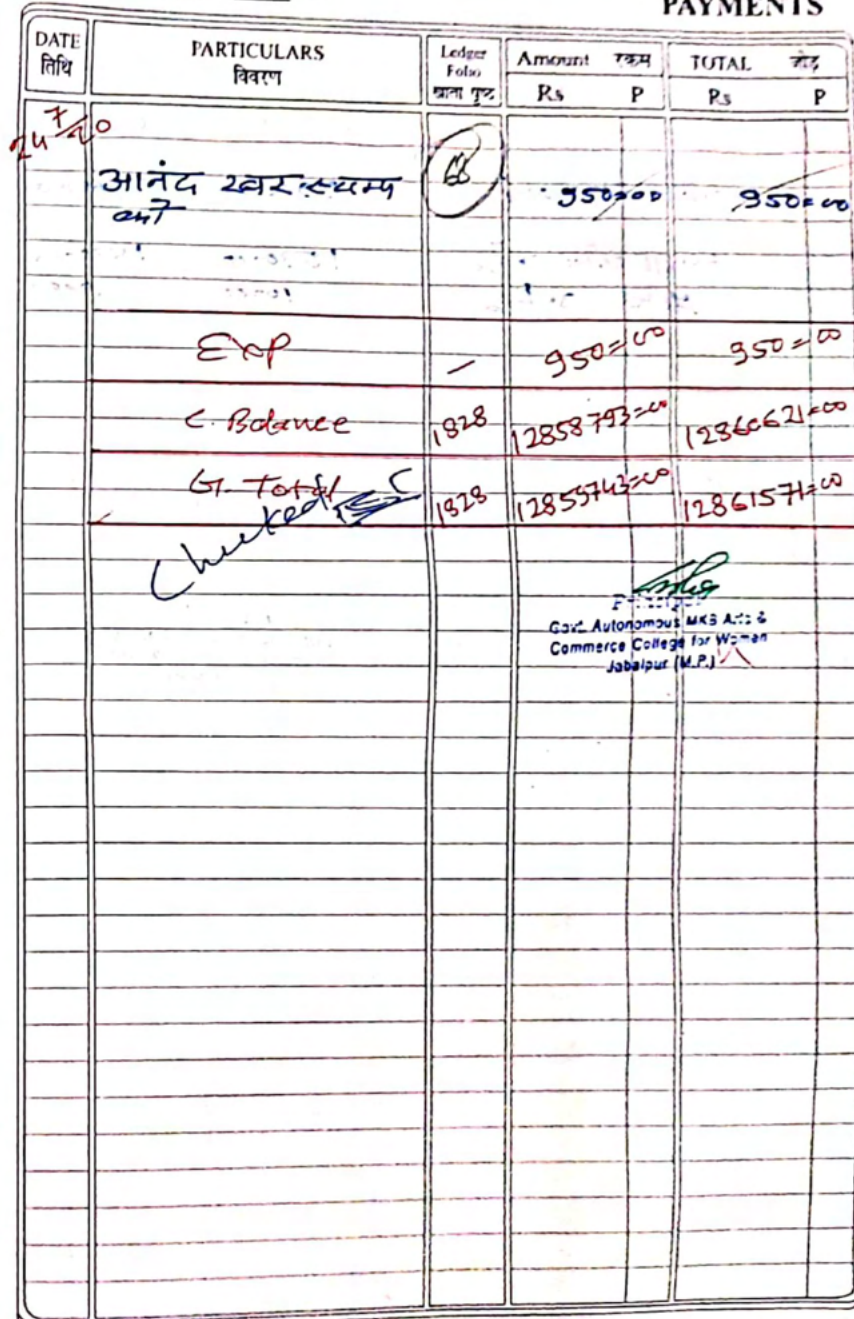 PAYMENTS
DATE PARTICULARS Ledger Amount रकम TOTAL जोड़
तिथि विवरण Folio खाता पृष्ठ Rs P Rs P
24/7/20
आनंद रबर स्टाम्प 66 950=00 950=00
को
Exp — 950=00 950=00
C. Balance 1828 12858793=00 12860621=00
G. Total 1828 12859743=00 12861571=00
Checked
Principal
Govt. Autonomous MKB Arts &
Commerce College for Women
Jabalpur (M.P.)